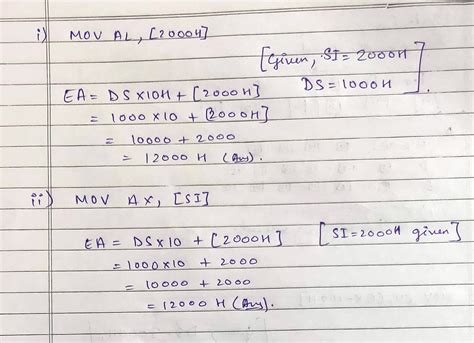 i) MOV AL, [2000H]
[Given, SI = 2000H
DS = 1000H].
EA = DS X 10H + [2000H]
= 1000 X 10 + [2000H]
= 10000 + 2000
= 12000 H (Ans).
ii) MOV AX, [SI]
EA = DS X 10 + [2000H] [SI = 2000H given]
= 1000 X 10 + 2000
= 10000 + 2000
= 12000 H (Ans).